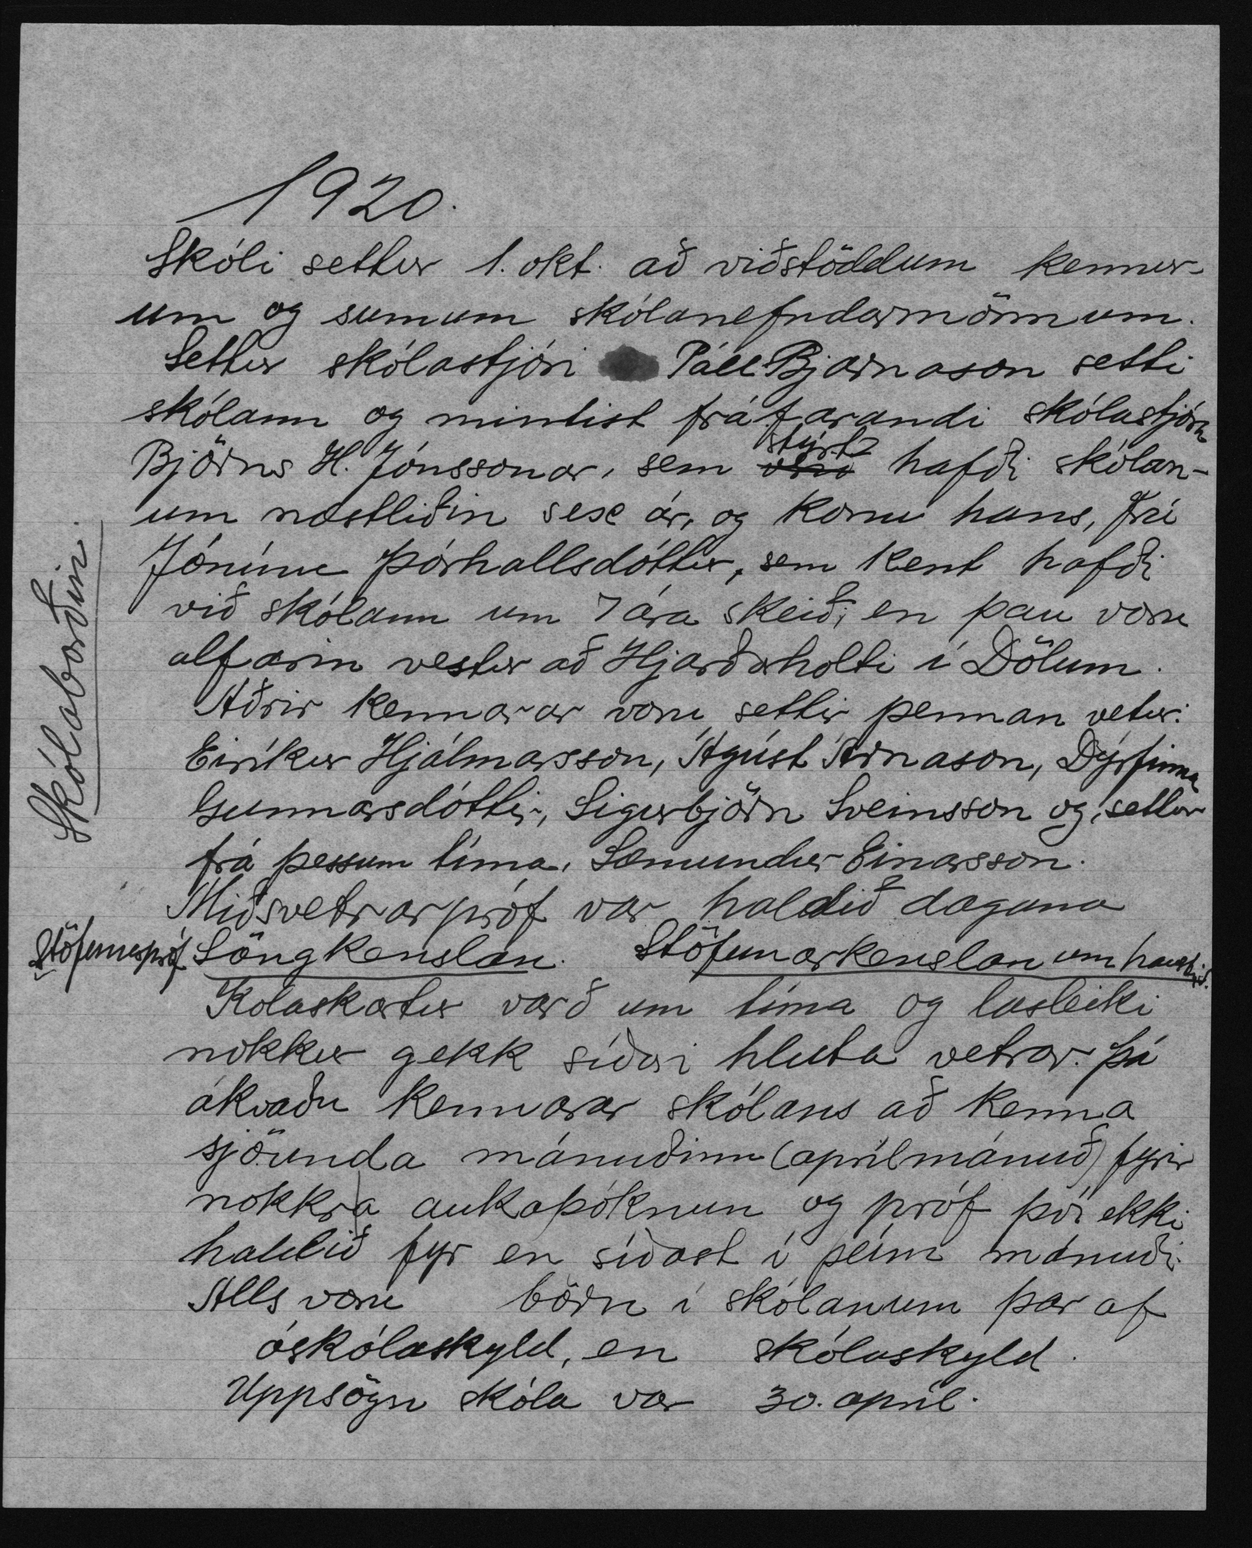 1920.
Skóli settur 1. okt. að viðstöddum kennur-
um og sumum skólanefndarmönnum.
Settur skólastjóri Páll Bjarnason setti
skólann og mintist fráfarandi skólastjóra
Björns H. Jónssonar, sem stýrt hafði skólan-
um næstliðin sex ár, og konu hans, frú
Jónínu Þórhallsdóttur, sem kent hafði
við skólann um 7 ára skeið; en þau voru
alfarin vestur að Hjarðarholti í Dölum.
Aðrir kennarar voru settir þennan vetur:
Eiríkur Hjálmarsson, Ágúst Árnason, Dýrfinna
Gunnarsdóttir, Sigurbjörn Sveinsson og, settur
frá þessum tíma, Sæmundur Einarsson.
Miðsvetrarpróf var haldið dagana
Stöfunarpróf Söngkenslan. Stöfunarkenslan um haustið.
Kolaskortur varð um tíma og lasleiki
nokkur gekk síðari hluta vetrar. Þá
ákváðu kennarar skólans að kenna
sjöunda mánuðinn (aprílmánuð) fyrir
nokkra aukaþóknun og próf því ekki
haldið fyr en síðast í þeim mánuði.
Alls voru börn í skólanum þar af
óskólaskyld, en skólaskyld.
Uppsögn skóla var 30. apríl.
Skólaborðin.